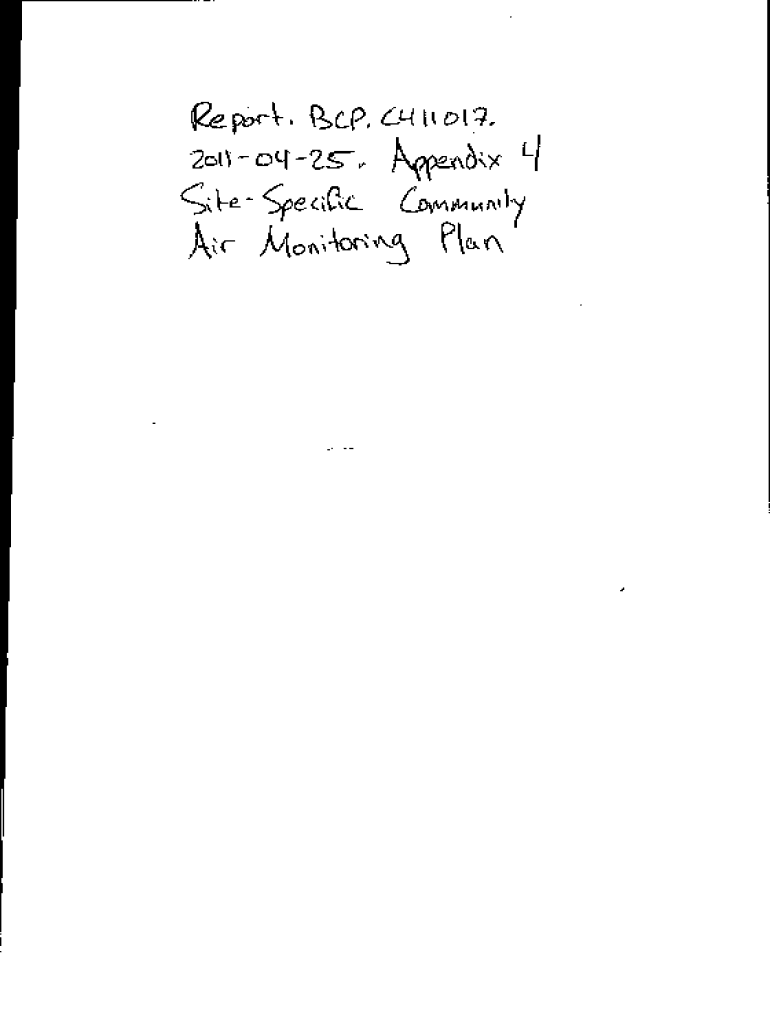 Report. BCP. C411017.
2011-04-25. Appendix 4
Site-Specific Community
Air Monitoring Plan